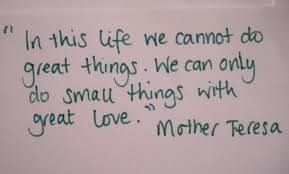 "In this life we cannot do
great things. We can only
do small things with
great love."
Mother Teresa